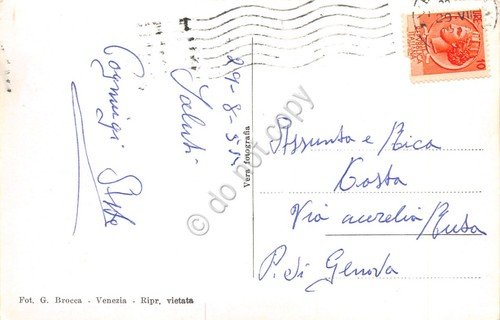 29-8-5
Saluti
Vera fotografia
Assunta e Rica
Costa
Via Aurelia
P. di Genova
Fot. G. Brocca - Venezia - Ripr. vietata
10
29 VIII
© do not copy